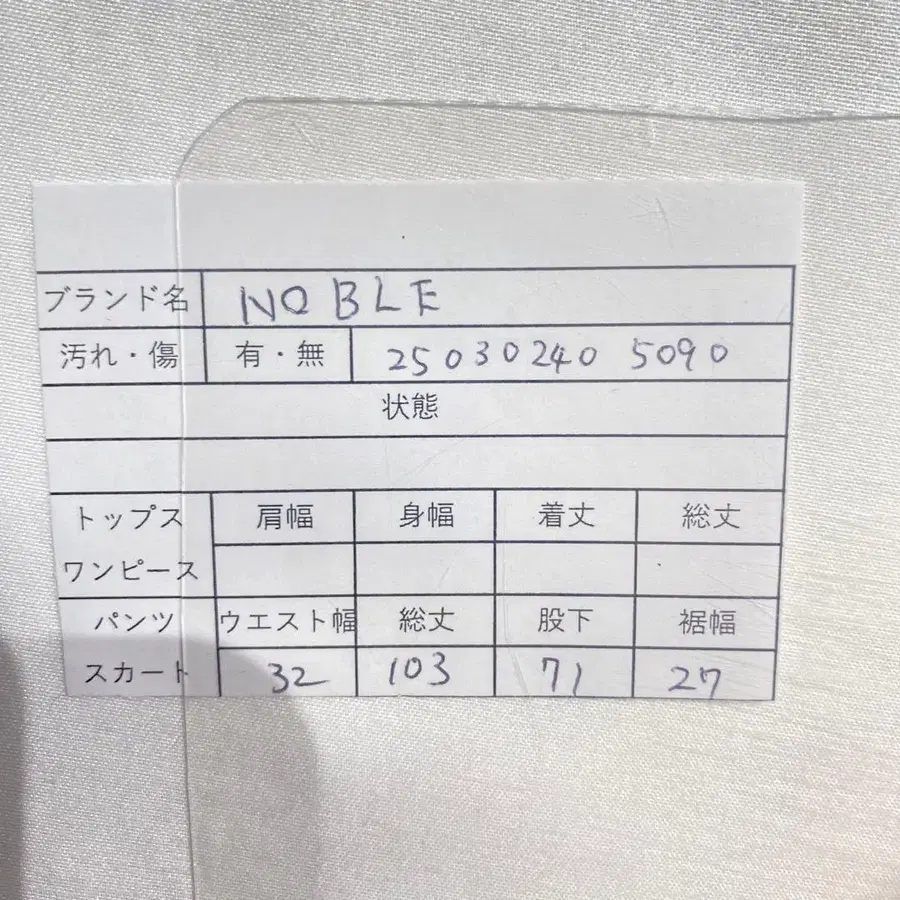 ブランド名 NOBLE
汚れ・傷 有・無 25030240 5090
状態
トップス 肩幅 身幅 着丈 総丈
ワンピース
パンツ ウエスト幅 総丈 股下 裾幅
スカート 32 103 71 27